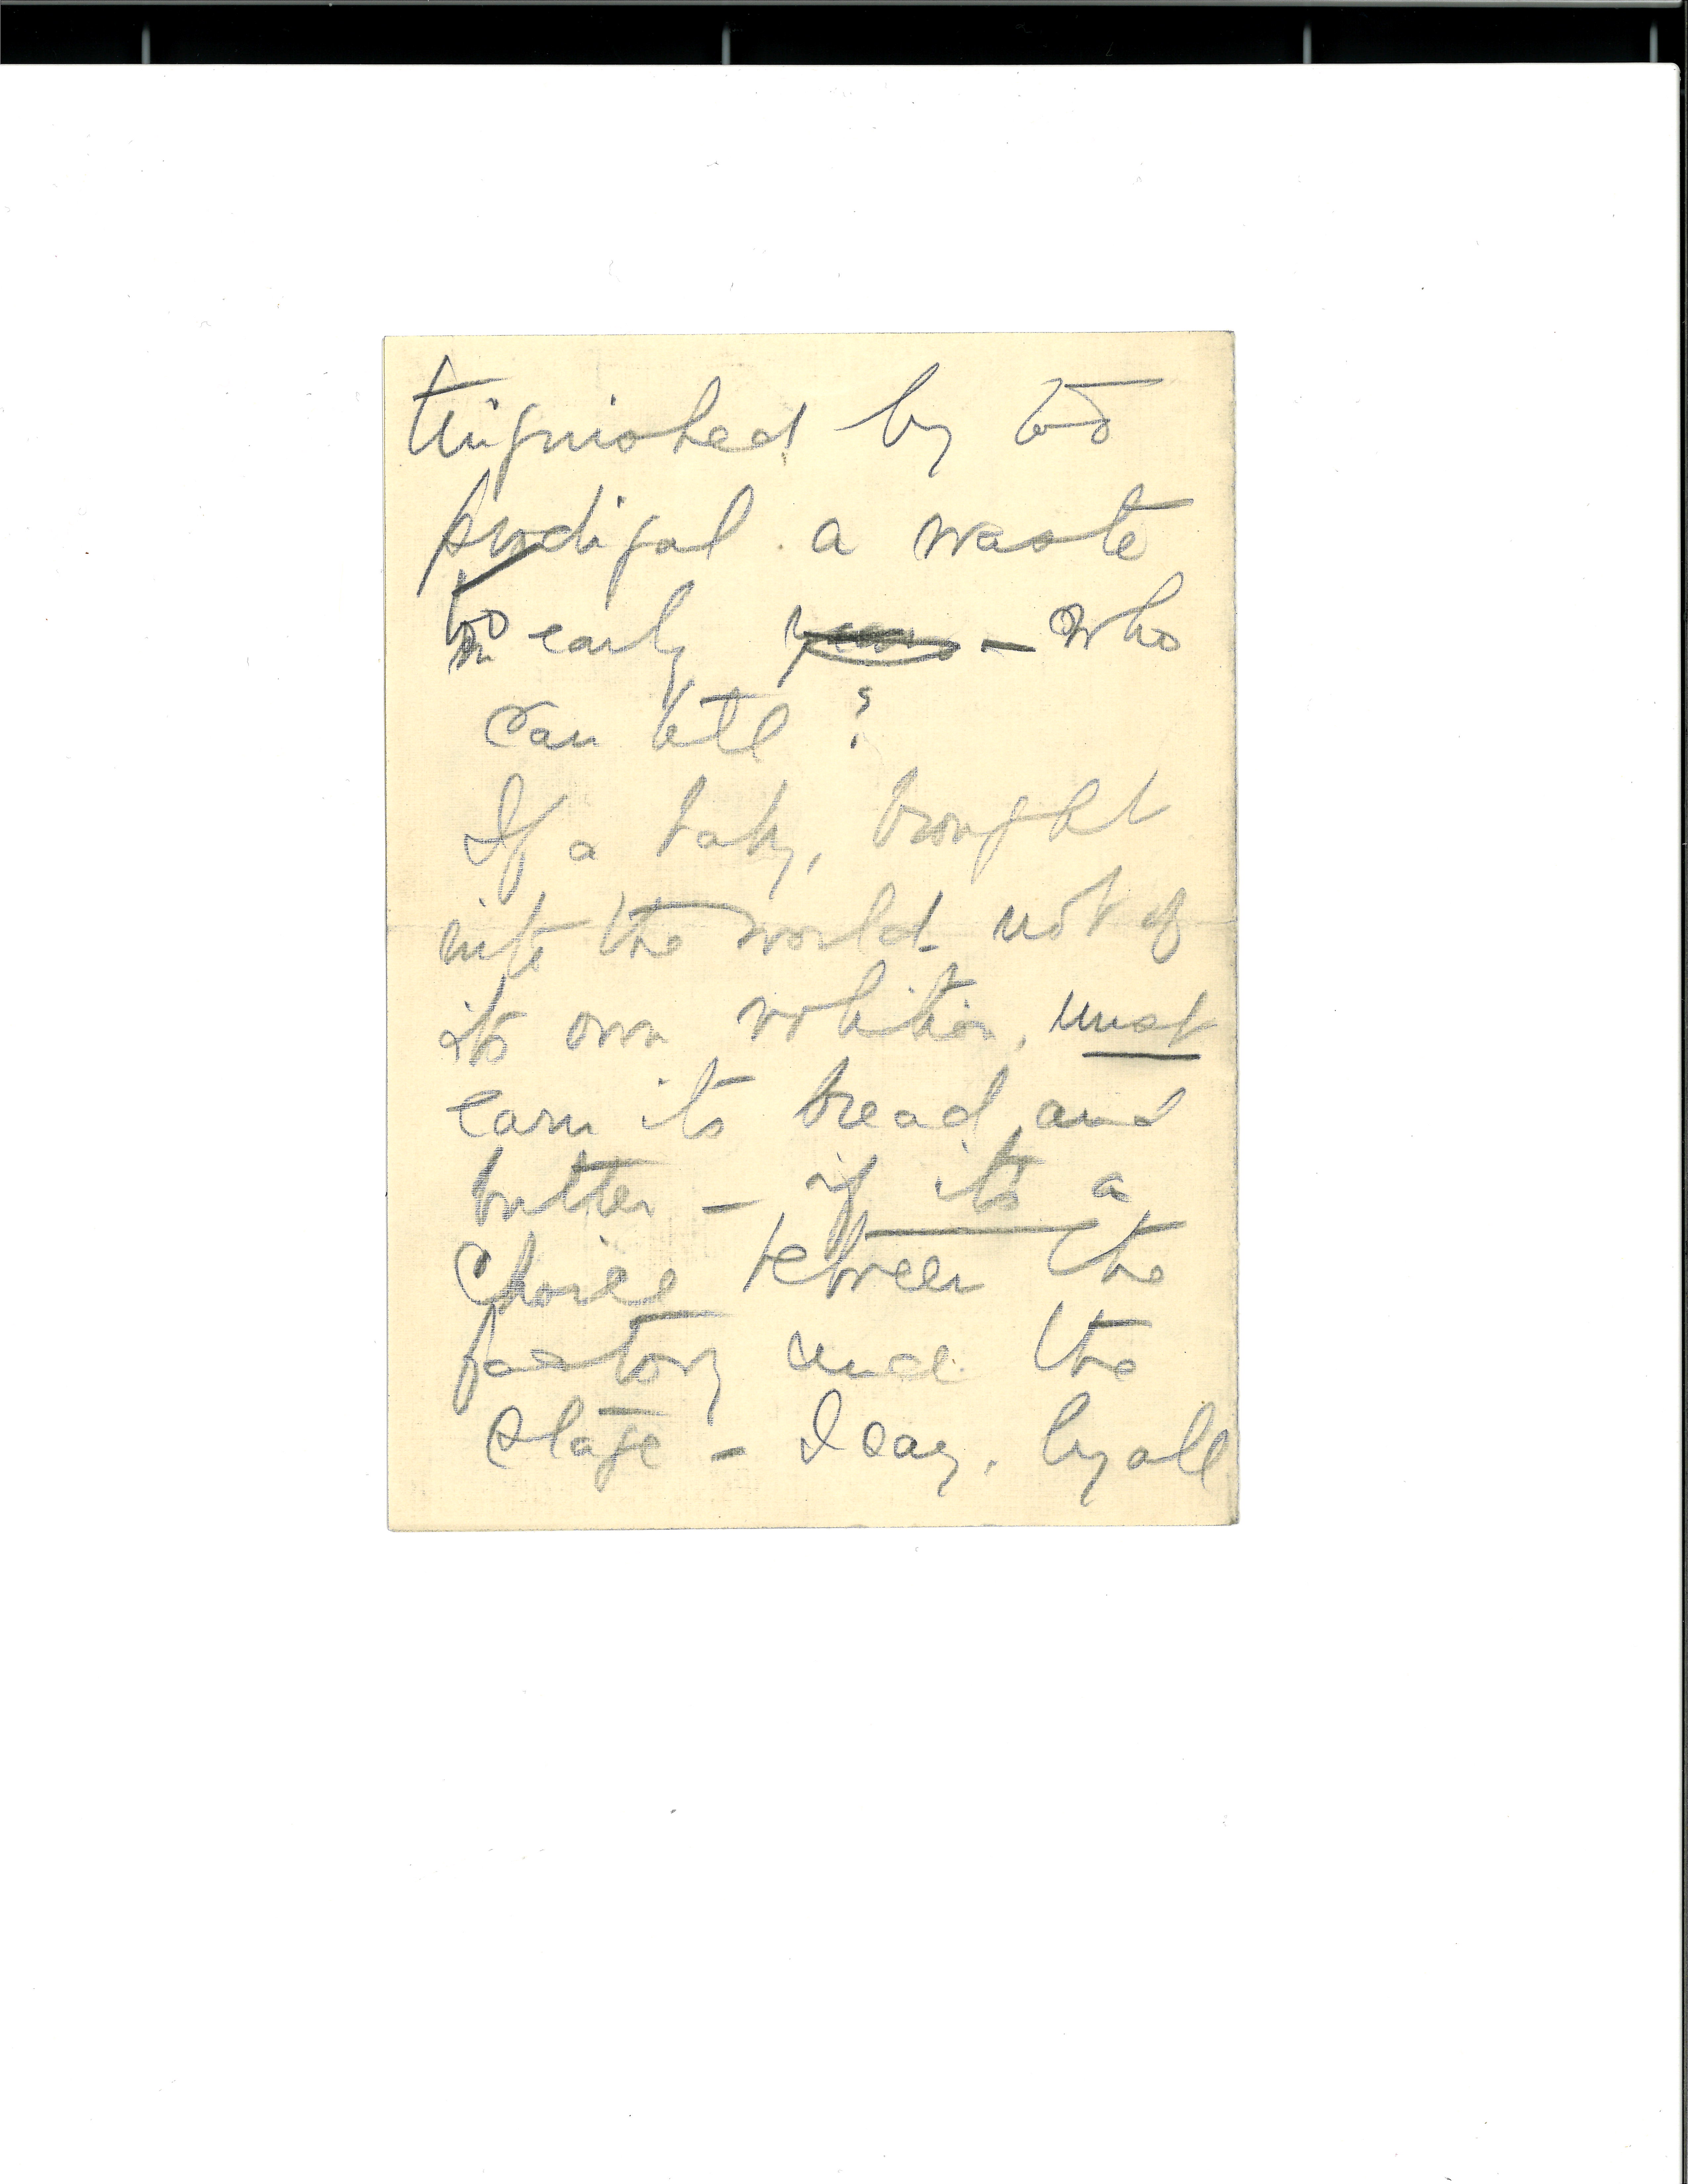 tinguished by too
prodigal a waste
too early years – who
can tell?
If a baby, brought
into the world not of
its own volition, must
earn its bread and
butter – if its a
choice between the
factory and the
stage – I say, by all